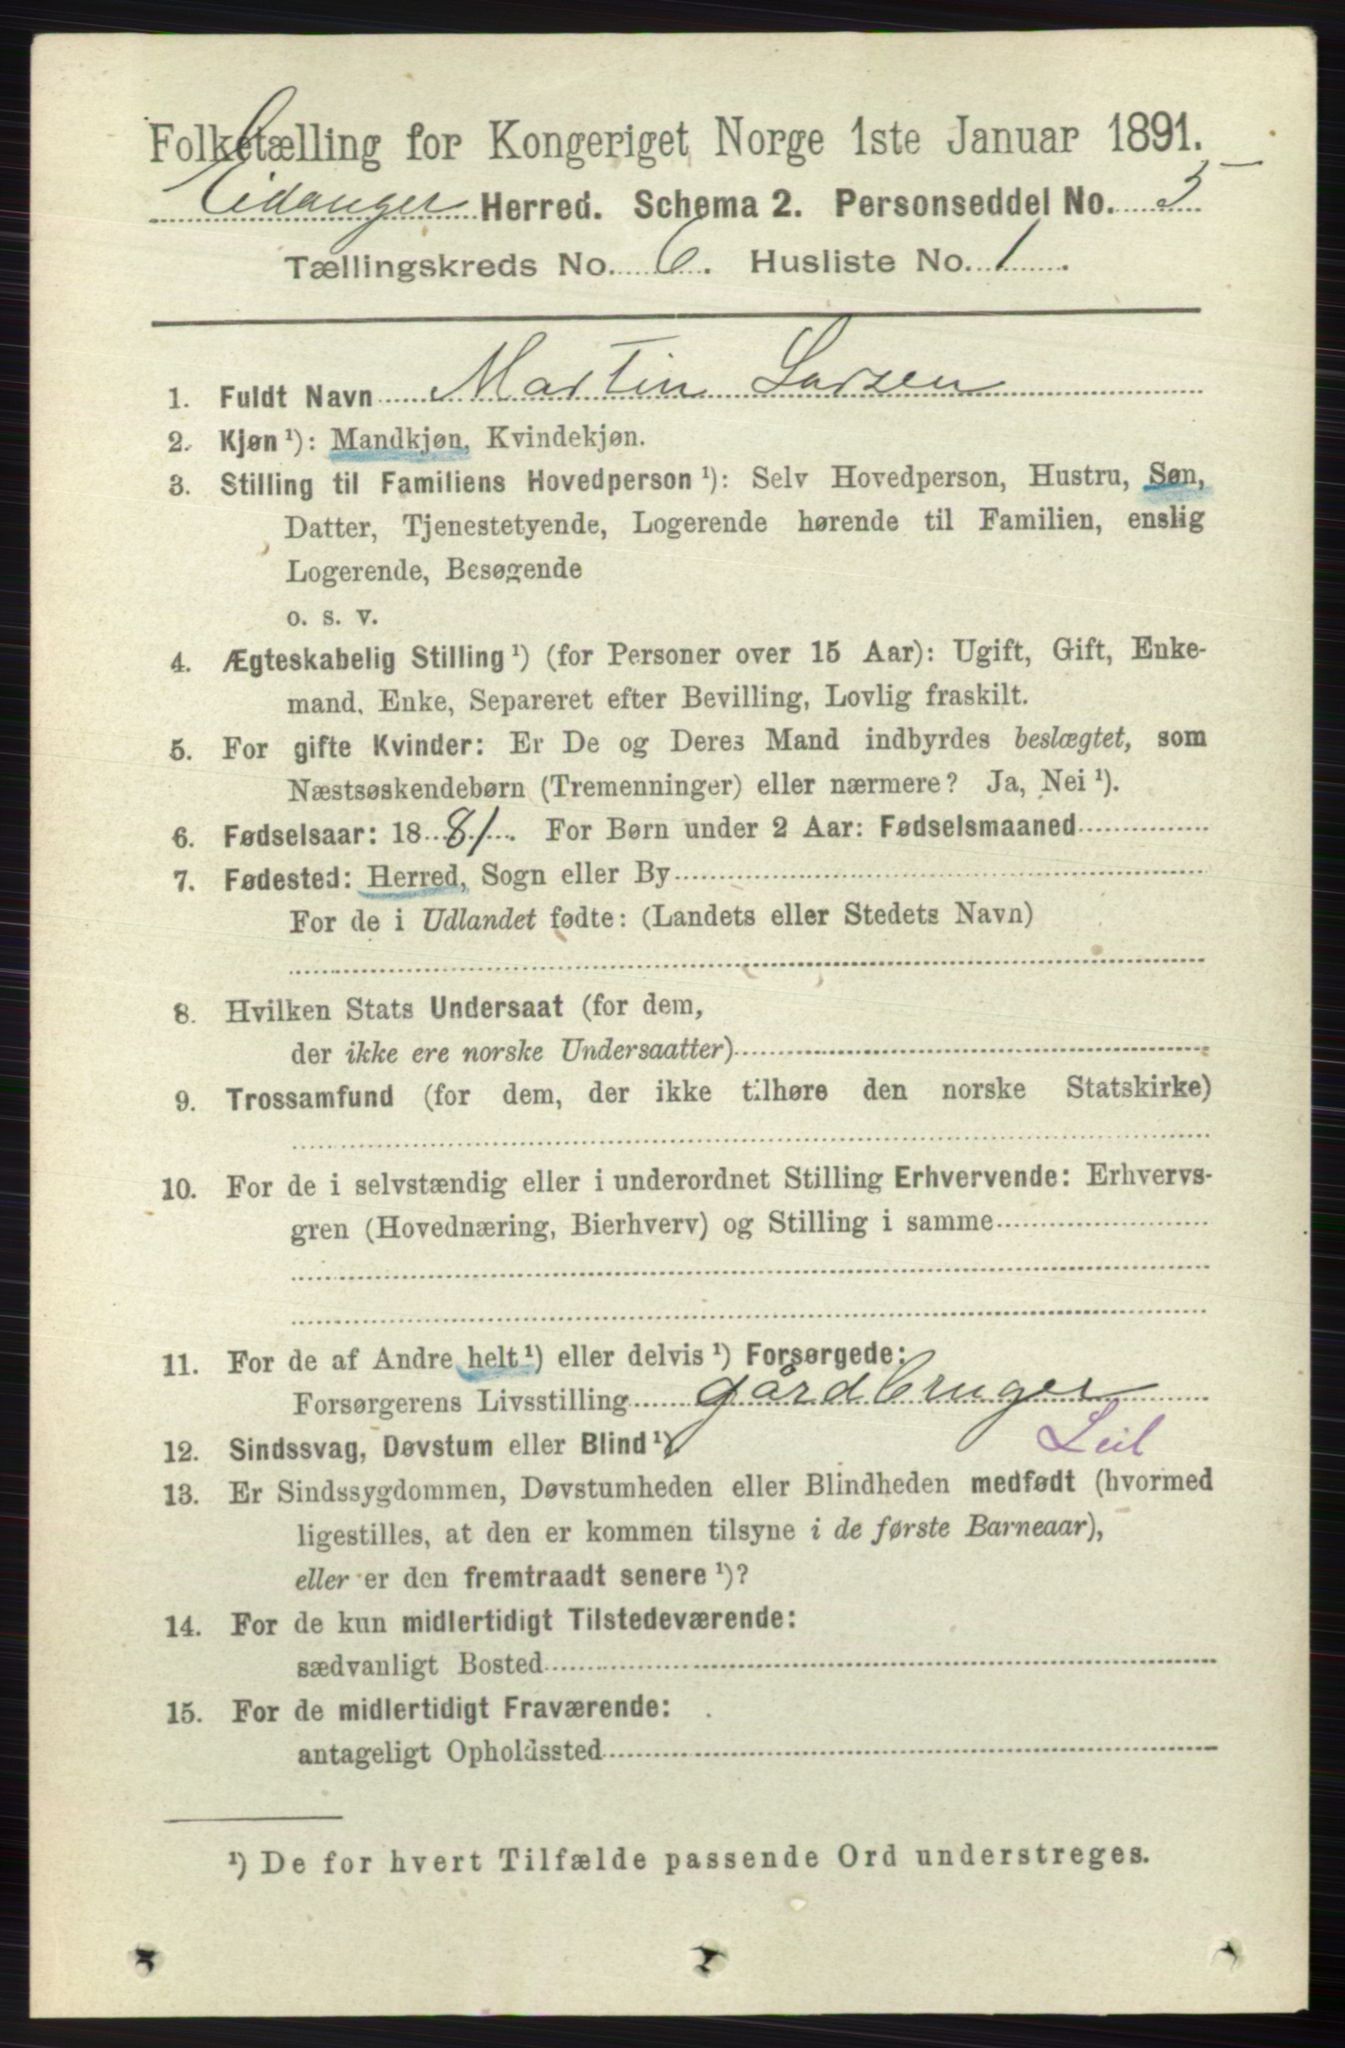 Folketælling for Kongeriget Norge 1ste Januar 1891.
Eidanger Herred. Schema 2. Personseddel No. 5
Tællingskreds No. 6. Husliste No. 1.
1. Fuldt Navn Martin Larsen
2. Kjøn ¹): Mandkjøn, Kvindekjøn.
3. Stilling til Familiens Hovedperson ¹): Selv Hovedperson, Hustru, Søn,
Datter, Tjenestetyende, Logerende hørende til Familien, enslig
Logerende, Besøgende
o. s. v.
4. Ægteskabelig Stilling ¹) (for Personer over 15 Aar): Ugift, Gift, Enke-
mand, Enke, Separeret efter Bevilling, Lovlig fraskilt.
5. For gifte Kvinder: Er De og Deres Mand indbyrdes beslægtet, som
Næstsøskendebørn (Tremenninger) eller nærmere? Ja, Nei ¹).
6. Fødselsaar: 1881. For Børn under 2 Aar: Fødselsmaaned
7. Fødested: Herred, Sogn eller By
For de i Udlandet fødte: (Landets eller Stedets Navn)
8. Hvilken Stats Undersaat (for dem,
der ikke ere norske Undersaatter)
9. Trossamfund (for dem, der ikke tilhøre den norske Statskirke)
10. For de i selvstændig eller i underordnet Stilling Erhvervende: Erhvervs-
gren (Hovednæring, Bierhverv) og Stilling i samme
11. For de af Andre helt ¹) eller delvis ¹) Forsørgede:
Forsørgerens Livsstilling gårdbruger
12. Sindssvag, Døvstum eller Blind ¹) Leil
13. Er Sindssygdommen, Døvstumheden eller Blindheden medfødt (hvormed
ligestilles, at den er kommen tilsyne i de første Barneaar),
eller er den fremtraadt senere ¹)?
14. For de kun midlertidigt Tilstedeværende:
sædvanligt Bosted
15. For de midlertidigt Fraværende:
antageligt Opholdssted
¹) De for hvert Tilfælde passende Ord understreges.